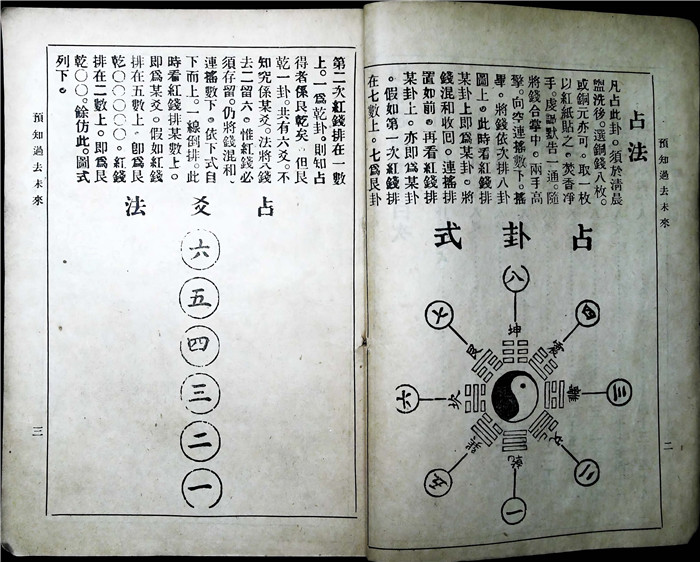 預知過去未來
二
占法
凡占此卦。須於淸晨
盥洗後。選銅錢八枚。
或銅元亦可。取一枚
以紅紙貼之。焚香凈
手。虔誠默告一通。隨
將錢合掌中。兩手高
擎。向空連搖數下。搖
畢。將錢依次排八卦
圖上。此時看紅錢排
某卦上卽爲某卦。將
錢混和收回。連搖排
置如前。再看紅錢排
某卦上。亦卽爲某卦
。假如第一次紅錢排
在七數上。七爲艮卦
占卦式
八
坤
四
震
三
離
二
兌
一
乾
五
巽
六
坎
艮
第二次紅錢排在一數
上。一爲乾卦。則知占
得者係艮乾矣。但艮
乾一卦。共有六爻。不
知究係某爻。法將八錢
去二留六。惟紅錢必
須存留。仍將錢混和、
連搖數下。依下式自
下而上。一線倒排。此
時看紅錢排某數上。
卽爲某爻。假如紅錢
排在五數上。卽爲艮
乾〇〇〇〇〇。紅錢
排在二數上。卽爲艮
乾〇〇。餘仿此。圖式
列下。
占爻法
六
五
四
三
二
一
預知過去未來
三